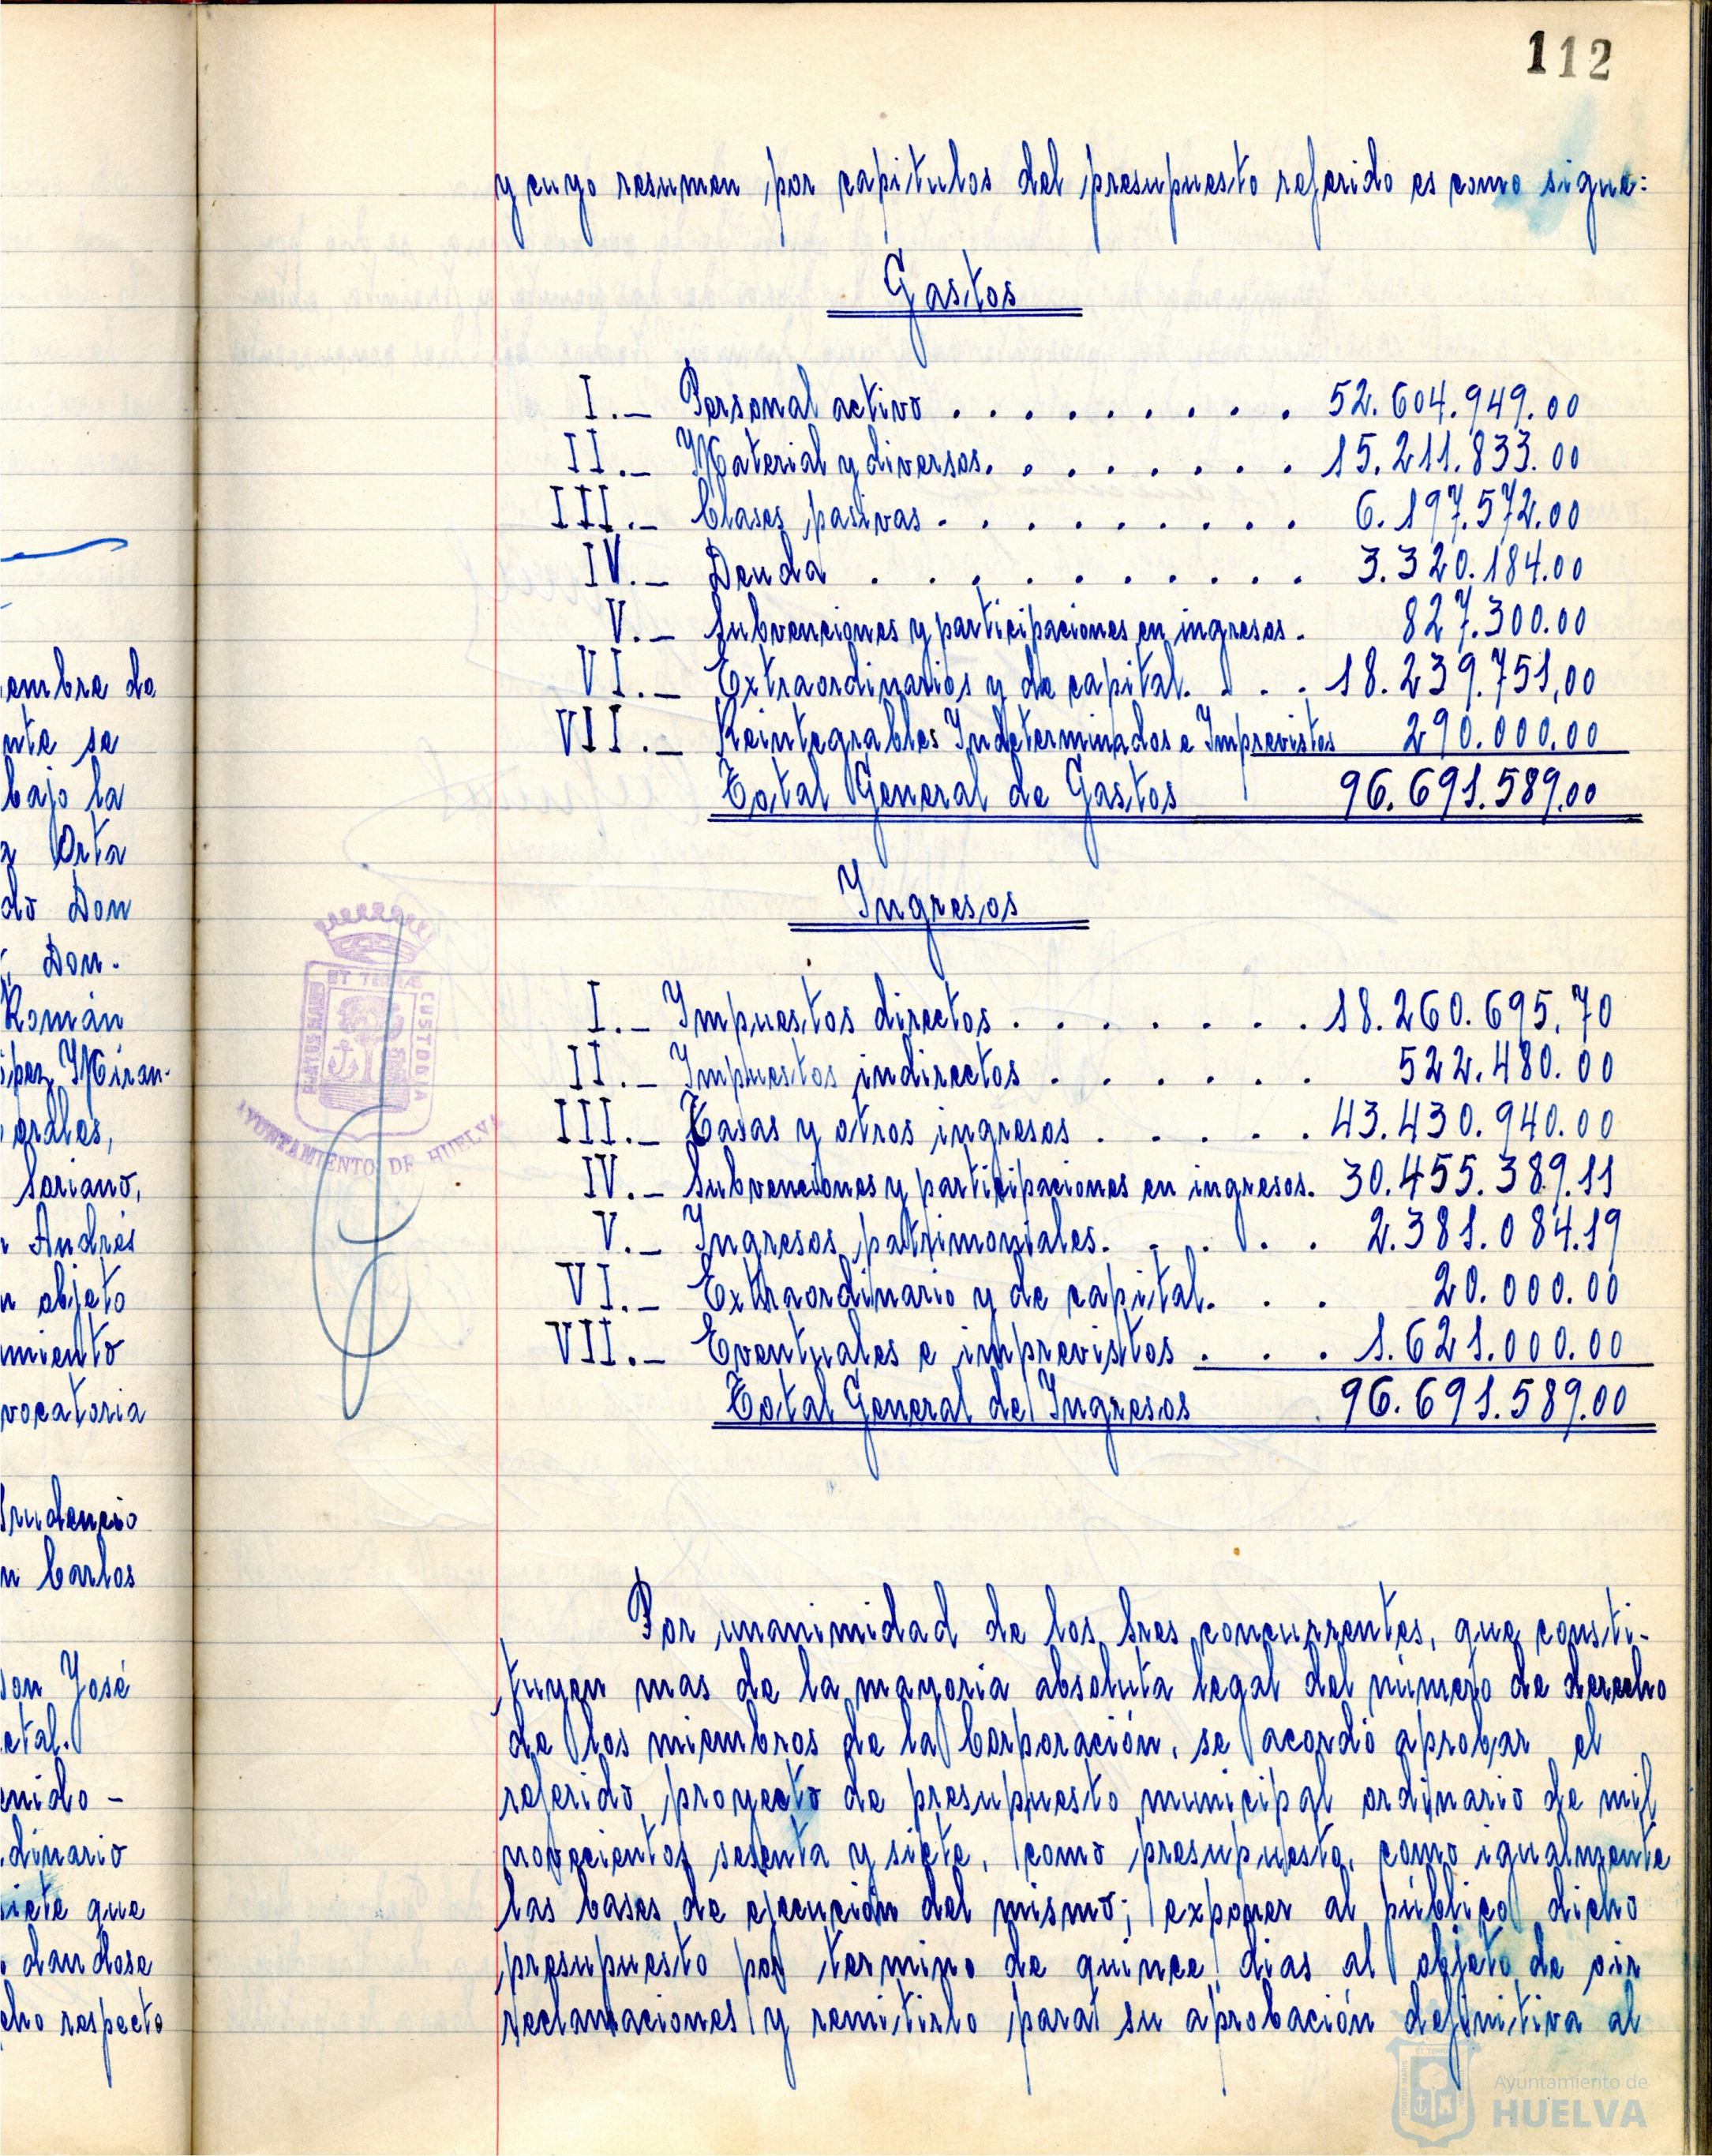 112
y cuyo resumen por capítulos del presupuesto referido es como sigue:
Gastos
I.- Personal activo . . . . . . . . . 52.604.949.00
II.- Material y diversos. . . . . . . . 15.211.833.00
III.- Clases pasivas . . . . . . . . . 6.197.572.00
IV.- Deuda . . . . . . . . . . 3.320.184.00
V.- Subvenciones y participaciones en ingresos . 827.300.00
VI.- Extraordinarios y de capital. . . . 18.239.751,00
VII.- Reintegrables Indeterminados e Imprevistos 290.000.00
Total General de Gastos 96.691.589.00
Ingresos
I.- Impuestos directos . . . . . . . 18.260.695,70
II.- Impuestos indirectos . . . . . . 522.480.00
III.- Tasas y otros ingresos . . . . . 43.430.940.00
IV.- Subvenciones y participaciones en ingresos. 30.455.389.11
V.- Ingresos patrimoniales. . . . . . 2.381.084.19
VI.- Extraordinario y de capital. . . 20.000.00
VII.- Eventuales e imprevistos . . . 1.621.000.00
Total General de Ingresos 96.691.589.00
Por unanimidad de los Sres concurrentes, que consti-
tuyen mas de la mayoria absoluta legal del número de derecho
de los miembros de la Corporación, se acordó aprobar el
referido proyecto de presupuesto municipal ordinario de mil
novecientos sesenta y siete, como presupuesto, como igualmente
las bases de ejecución del mismo; exponer al público dicho
presupuesto por termino de quince dias al objeto de oir
reclamaciones y remitirlo para su aprobación definitiva al
embre de
nte se
bajo la
Orta
do Don
Don.
Román
Miran-
orales,
Soriano,
Andrés
objeto
miento
vocatoria
Prudencio
n Carlos
Don José
etal.
enido -
dinario
siete que
dandose
cho respecto
PORTUS MARIS
ET TERRÆ
CUSTODIA
AYUNTAMIENTO DE HUELVA
Ayuntamiento de
HUELVA